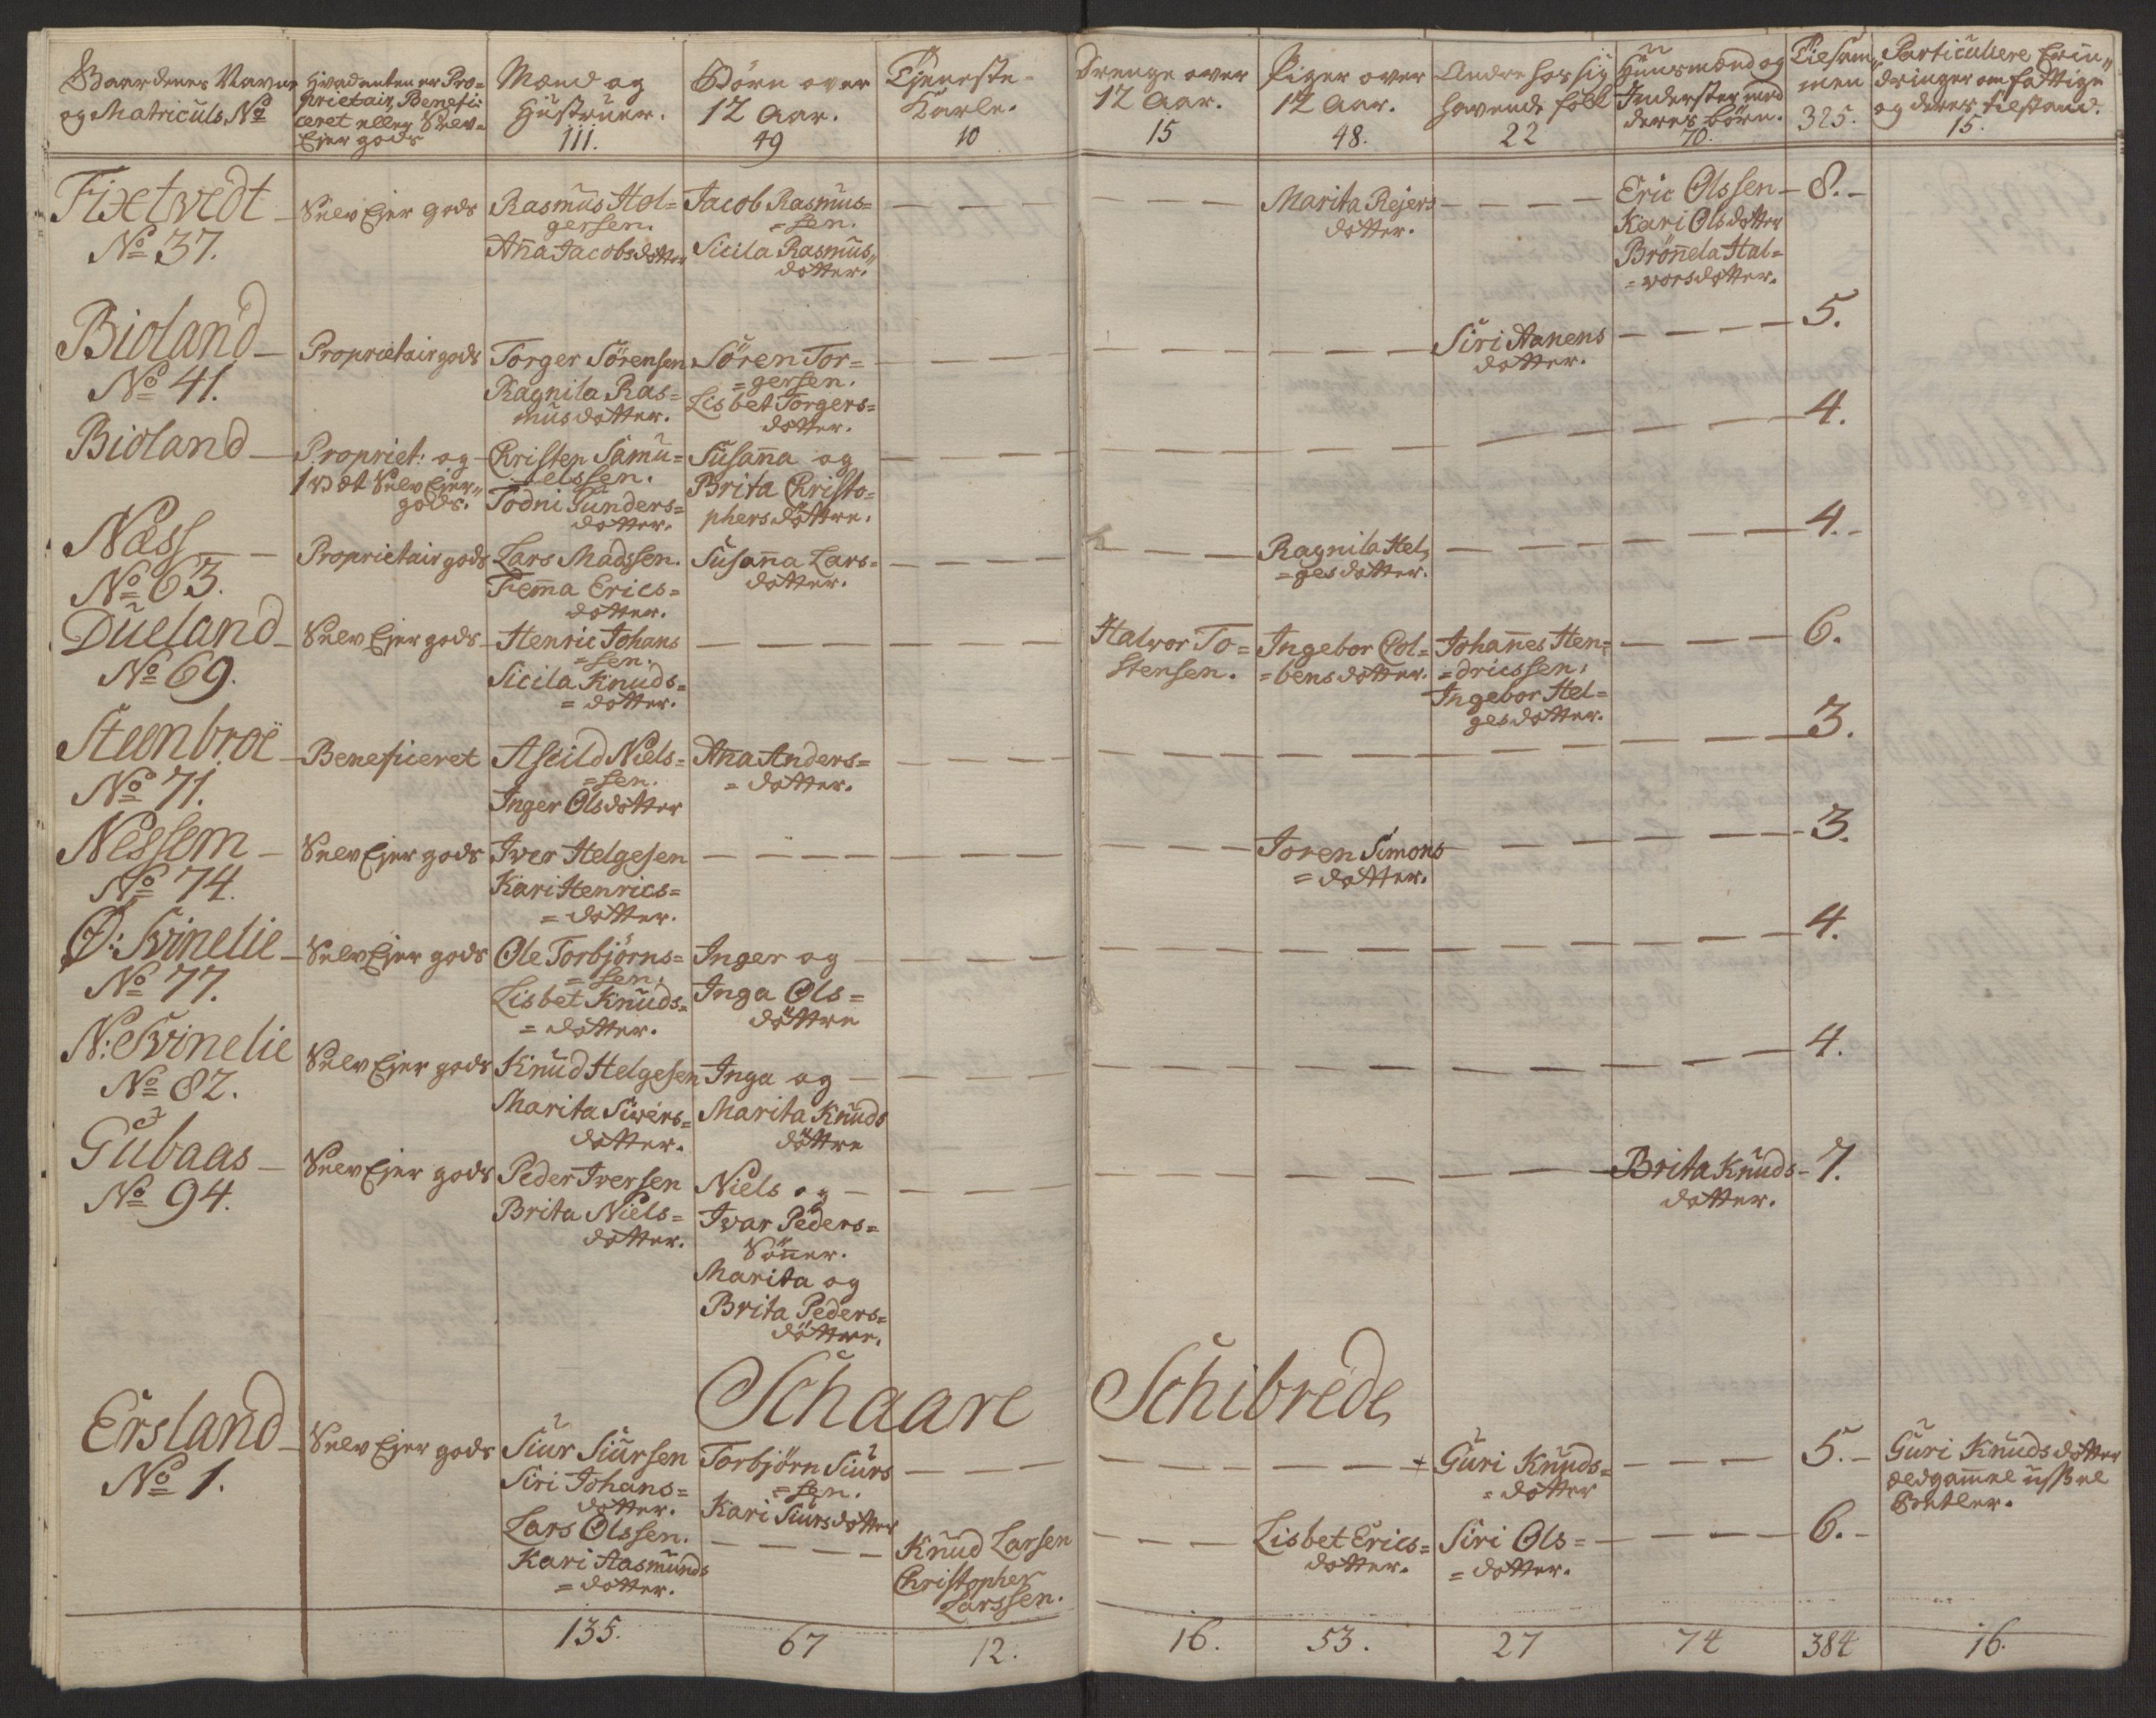 Gaardenes Navne
og Matriculs No
Hvad enten er Pro=
prietair, Benefi=
ceret eller Selv=
Ejer gods
Mænd og
Hustruer.
111.
Børn over
12 Aar.
49
Tjeneste-
Karle.
10
Drenge over
12 Aar.
15
Piger over
12 Aar.
48.
Andre hos sig
havende folk
22
Huusmænd og
Inderster med
deres børn.
70.
Tilsam„
men
325.
Particuliere Erin„
dringer om fattige
og deres tilstand.
15.
Fixetvedt
No 37.
Selv Ejer gods
Rasmus Hol=
gersen.
Anna Jacobsdotter
Jacob Rasmus=
=sen.
Sicila Rasmus„
dotter.
Marita Rejers
dotter.
Eric Olssen
Kari Olsdotter
Brönnela Hal=
=vorsdotter.
8.
Bioland
No 41.
Proprietair gods
Torger Sörensen
Ragnila Ras=
musdotter.
Sören Tor=
=gersen.
Lisbet Torgers=
dotter.
Siri Aanens
dotter.
5.
Bioland
Propriet: og
1 Sæt Selv Ejer„
gods.
Christen Samu=
=elssen.
Todni Gunders=
dotter.
Susanna og
Brita Christo=
phersdöttre.
4.
Næss
No 63.
Proprietair gods
Lars Madssen.
Temma Erics=
dotter.
Susanna Lars=
dotter.
Ragnila Hel„
=gesdotter.
4.
Dueland
No 69.
Selv Ejer gods
Henric Johans
=sen.
Sicila Knuds=
=dotter.
Halvor To=
stensen.
Ingebor Col=
=bensdotter.
Johannes Hen=
=dricssen.
Ingebor Hel=
gesdotter.
6.
Steenbroe
No 71.
Beneficeret
Ascild Niels=
=sen.
Inger Olsdotter
Anna Anders=
=dotter.
3.
Nessem
No 74.
Selv Ejer gods
Iver Helgesen
Kari Henrics=
=dotter.
Joren Simons
=dotter.
3.
Ø: Svinelie
No 77.
Selv Ejer gods
Ole Torbjörns=
=sen.
Lisbet Knuds=
=dotter.
Inger og
Inga Ols=
döttre
4.
N: Svinelie
No 82.
Selv Ejer gods
Knud Helgesen
Marita Sivers=
dotter.
Inga og
Marita Knuds
döttre
4.
Gubaas
No 94.
Selv Ejer gods
Peder Iversen
Brita Niels=
dotter.
Niels og
Ivar Peders=
Sönner.
Marita og
Brita Peders=
döttre.
Brita Knuds
dotter.
7.
Schaare Schibrede
Ersland
No 1.
Selv Ejer gods
Siur Siursen
Siri Johans=
dotter.
Torbjörn Siurs
=sen.
Kari Siursdotter
+ Guri Knuds=
=dotter
5.
Guri Knudsdotter
ældgammel ussel
Betler.
Lars Olssen.
Kari Aasmunds
=dotter.
Knud Larsen
Christopher
Larssen.
Lisbet Erics=
dotter.
Siri Ols=
=dotter.
6.
135.
67
12.
16.
53.
27
74
384
16.